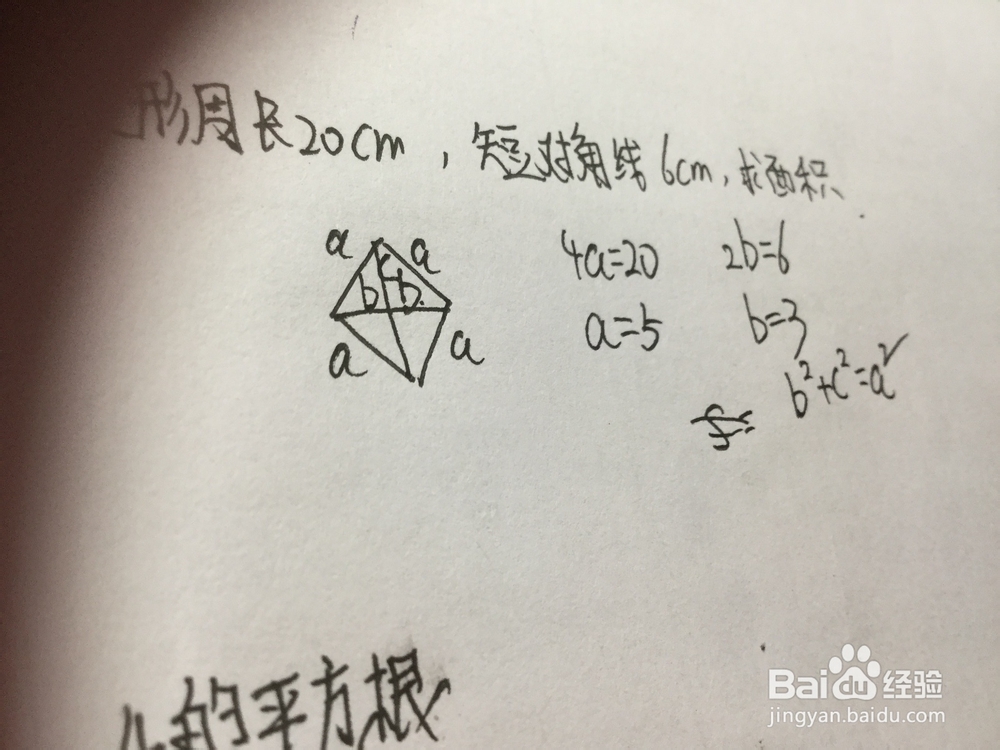 形周长20cm,短对角线6cm,求面积.
a a
c
b b.
a a
4a=20 2b=6
a=5 b=3
b²+c²=a²
S=
的平方根
Baidu经验
jingyan.baidu.com